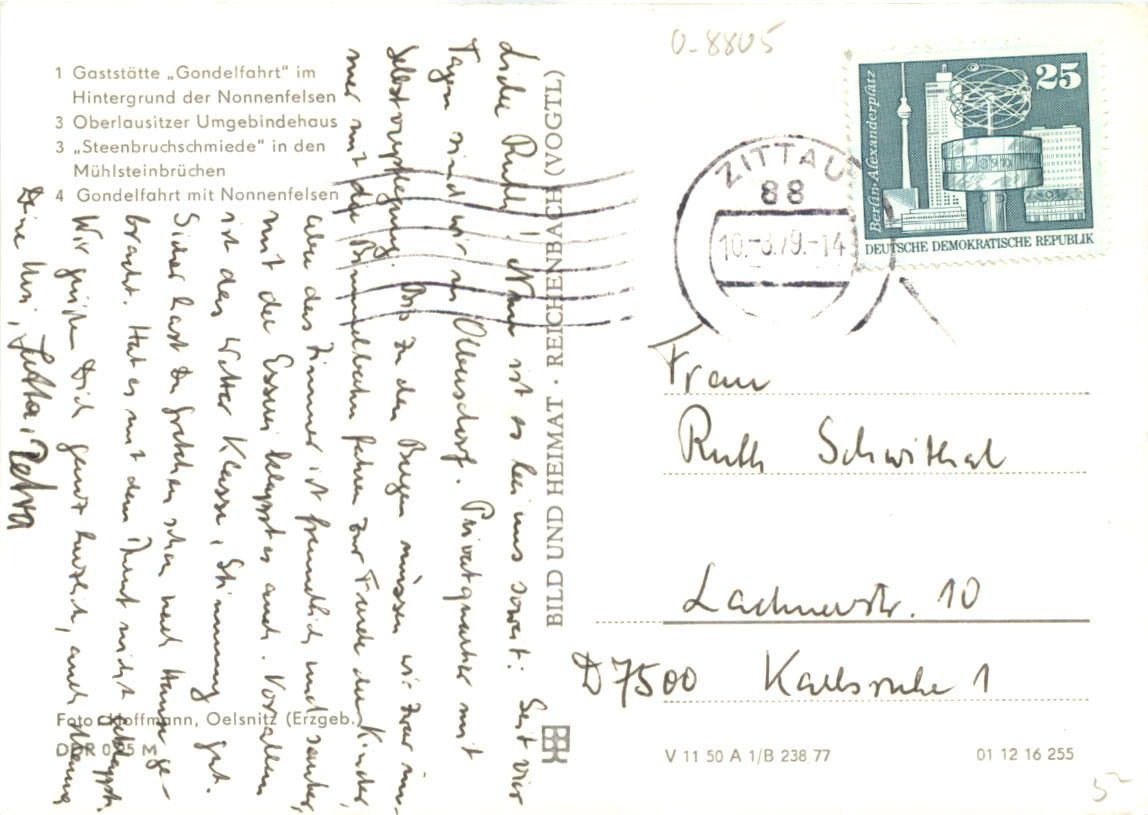 1 Gaststätte „Gondelfahrt" im
Hintergrund der Nonnenfelsen
3 Oberlausitzer Umgebindehaus
3 „Steenbruchschmiede" in den
Mühlsteinbrüchen
4 Gondelfahrt mit Nonnenfelsen
Liebe Ruth! Nun ist es bei uns soweit: Seit vier
Tagen sind wir in Olbersdorf. Privatquartier mit
Selbstverpflegung. Bis zu den Bergen müssen wir zwar im-
mer mit der Bimmelbahn fahren zur Freude der Kinder,
aber das Zimmer ist freundlich und sauber,
mit der Esserei klappt es auch. Vor allem
ist das Wetter Klasse, Stimmung gut.
Sicher hast Du Gretchen schon nach Hause ge-
bracht. Hat es mit dem nicht geklappt.
Wir grüßen Dich ganz herzlich, auch
Deine Uri, Jutta, Petra
Foto: Hoffmann, Oelsnitz (Erzgeb.)
DDR 0,25 M
BILD UND HEIMAT · REICHENBACH (VOGTL)
0-8805
ZITTAU
88
10.-8.79.-14
25
Berlin-Alexanderplatz
DEUTSCHE DEMOKRATISCHE REPUBLIK
Frau
Ruth Schwithal
Lachnerstr. 10
D7500 Karlsruhe 1
V 11 50 A 1/B 238 77
01 12 16 255